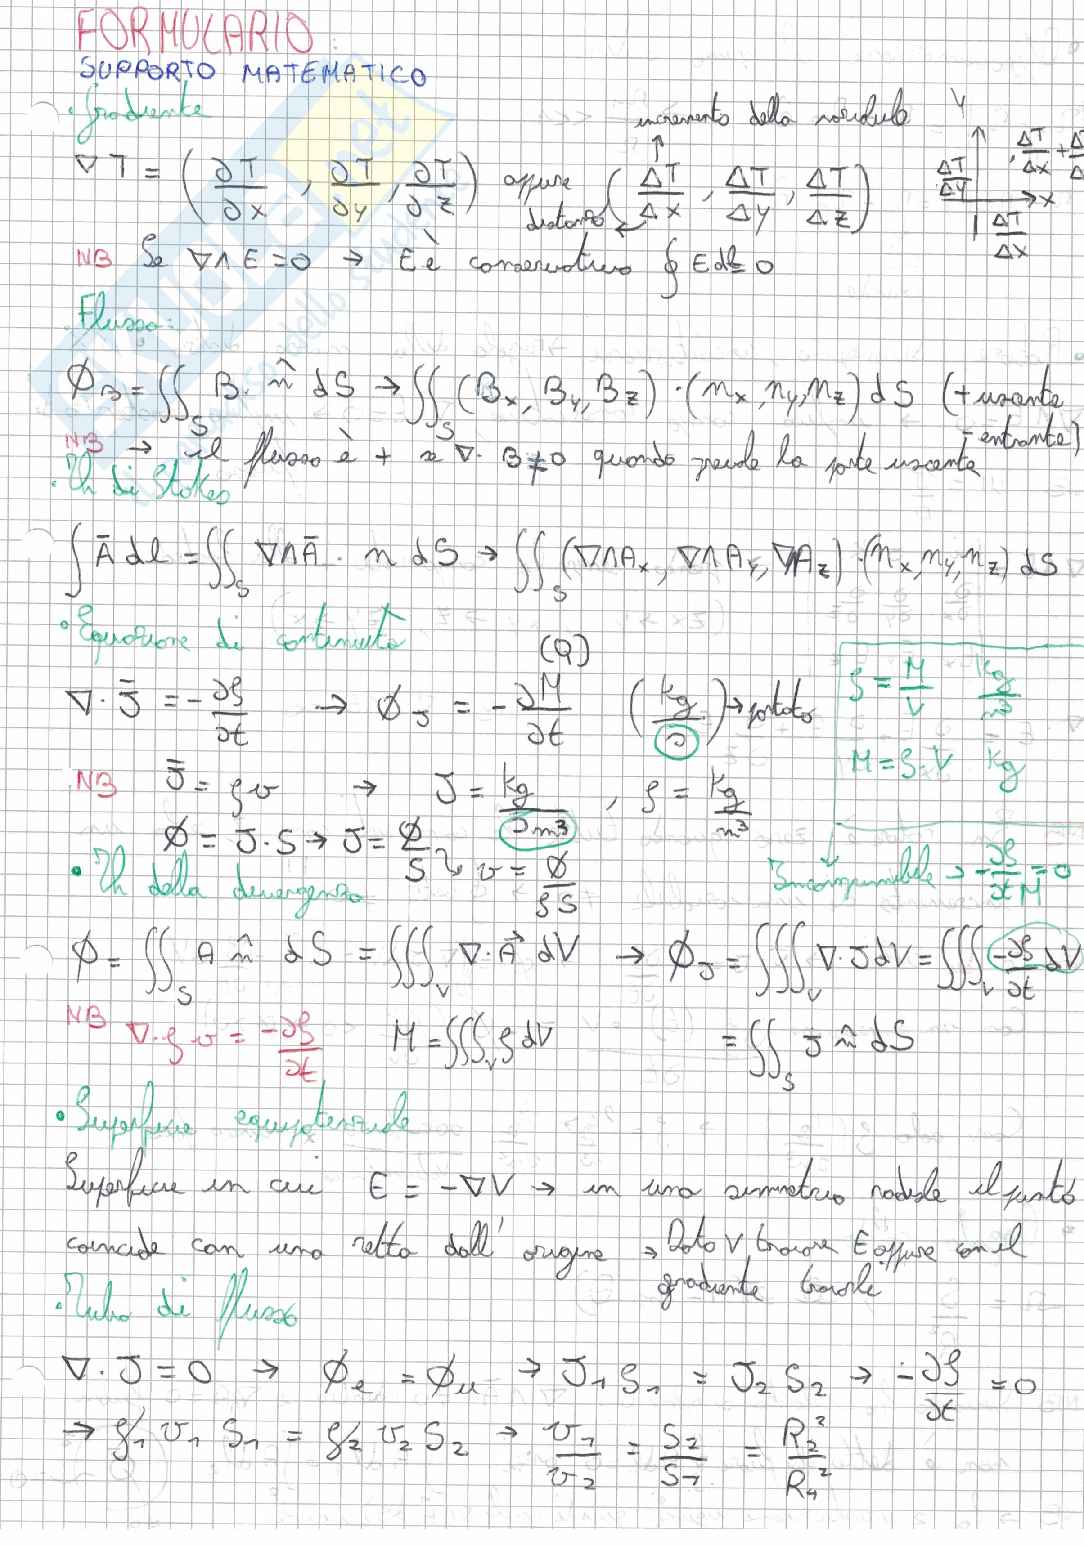 FORMULARIO:
SUPPORTO MATEMATICO
· Gradiente
incremento della variabile
∇T = (∂T/∂x, ∂T/∂y, ∂T/∂z) oppure (ΔT/Δx, ΔT/Δy, ΔT/Δz)
distanza
y
ΔT/Δy
ΔT/Δx +
x
ΔT/Δx
NB Se ∇∧E = 0 → E è conservativo ∮ E dl = 0
· Flusso:
Φ_B = ∬_S B · n̂ dS → ∬_S (B_x, B_y, B_z) · (n_x, n_y, n_z) dS (+ uscente
- entrante)
NB → il flusso è + se ∇· B ≠ 0 quando prende la parte uscente
· Th di Stokes
∫ Ā dl = ∬_S ∇∧Ā · n dS → ∬_S (∇∧A_x, ∇∧A_y, ∇A_z) · (n_x, n_y, n_z) dS
· Equazione di continuità
(Q)
∇· J̄ = -∂ρ/∂t → Φ_J = -∂M/∂t (kg/s) → portata
ρ = M/V kg/m³
M = ρ·V kg
NB J̄ = ρv → J = kg/sm³, ρ = kg/m³
Φ = J·S → J = Φ/S ↘ v = Φ/ρS
Incomprimibile → -∂ρ/∂t = 0
M
· Th della divergenza
Φ = ∬_S A n̂ dS = ∭_V ∇·A⃗ dV → Φ_J = ∭_V ∇·J dV = ∭_V -∂ρ/∂t dV
NB ∇·ρv = -∂ρ/∂t M = ∭_V ρ dV = ∬_S J n̂ dS
· Superficie equipotenziale
Superficie in cui E = -∇V → in una simmetria radiale il punto
coincide con una retta dall'origine → Dato V, trovare E oppure con il
gradiente trovarle
· Tubo di flusso
∇· J = 0 → Φ_e = Φ_u → J₁ S₁ = J₂ S₂ → -∂ρ/∂t = 0
→ ρ₁ v₁ S₁ = ρ₂ v₂ S₂ → v₁/v₂ = S₂/S₁ = R₂²/R₁²